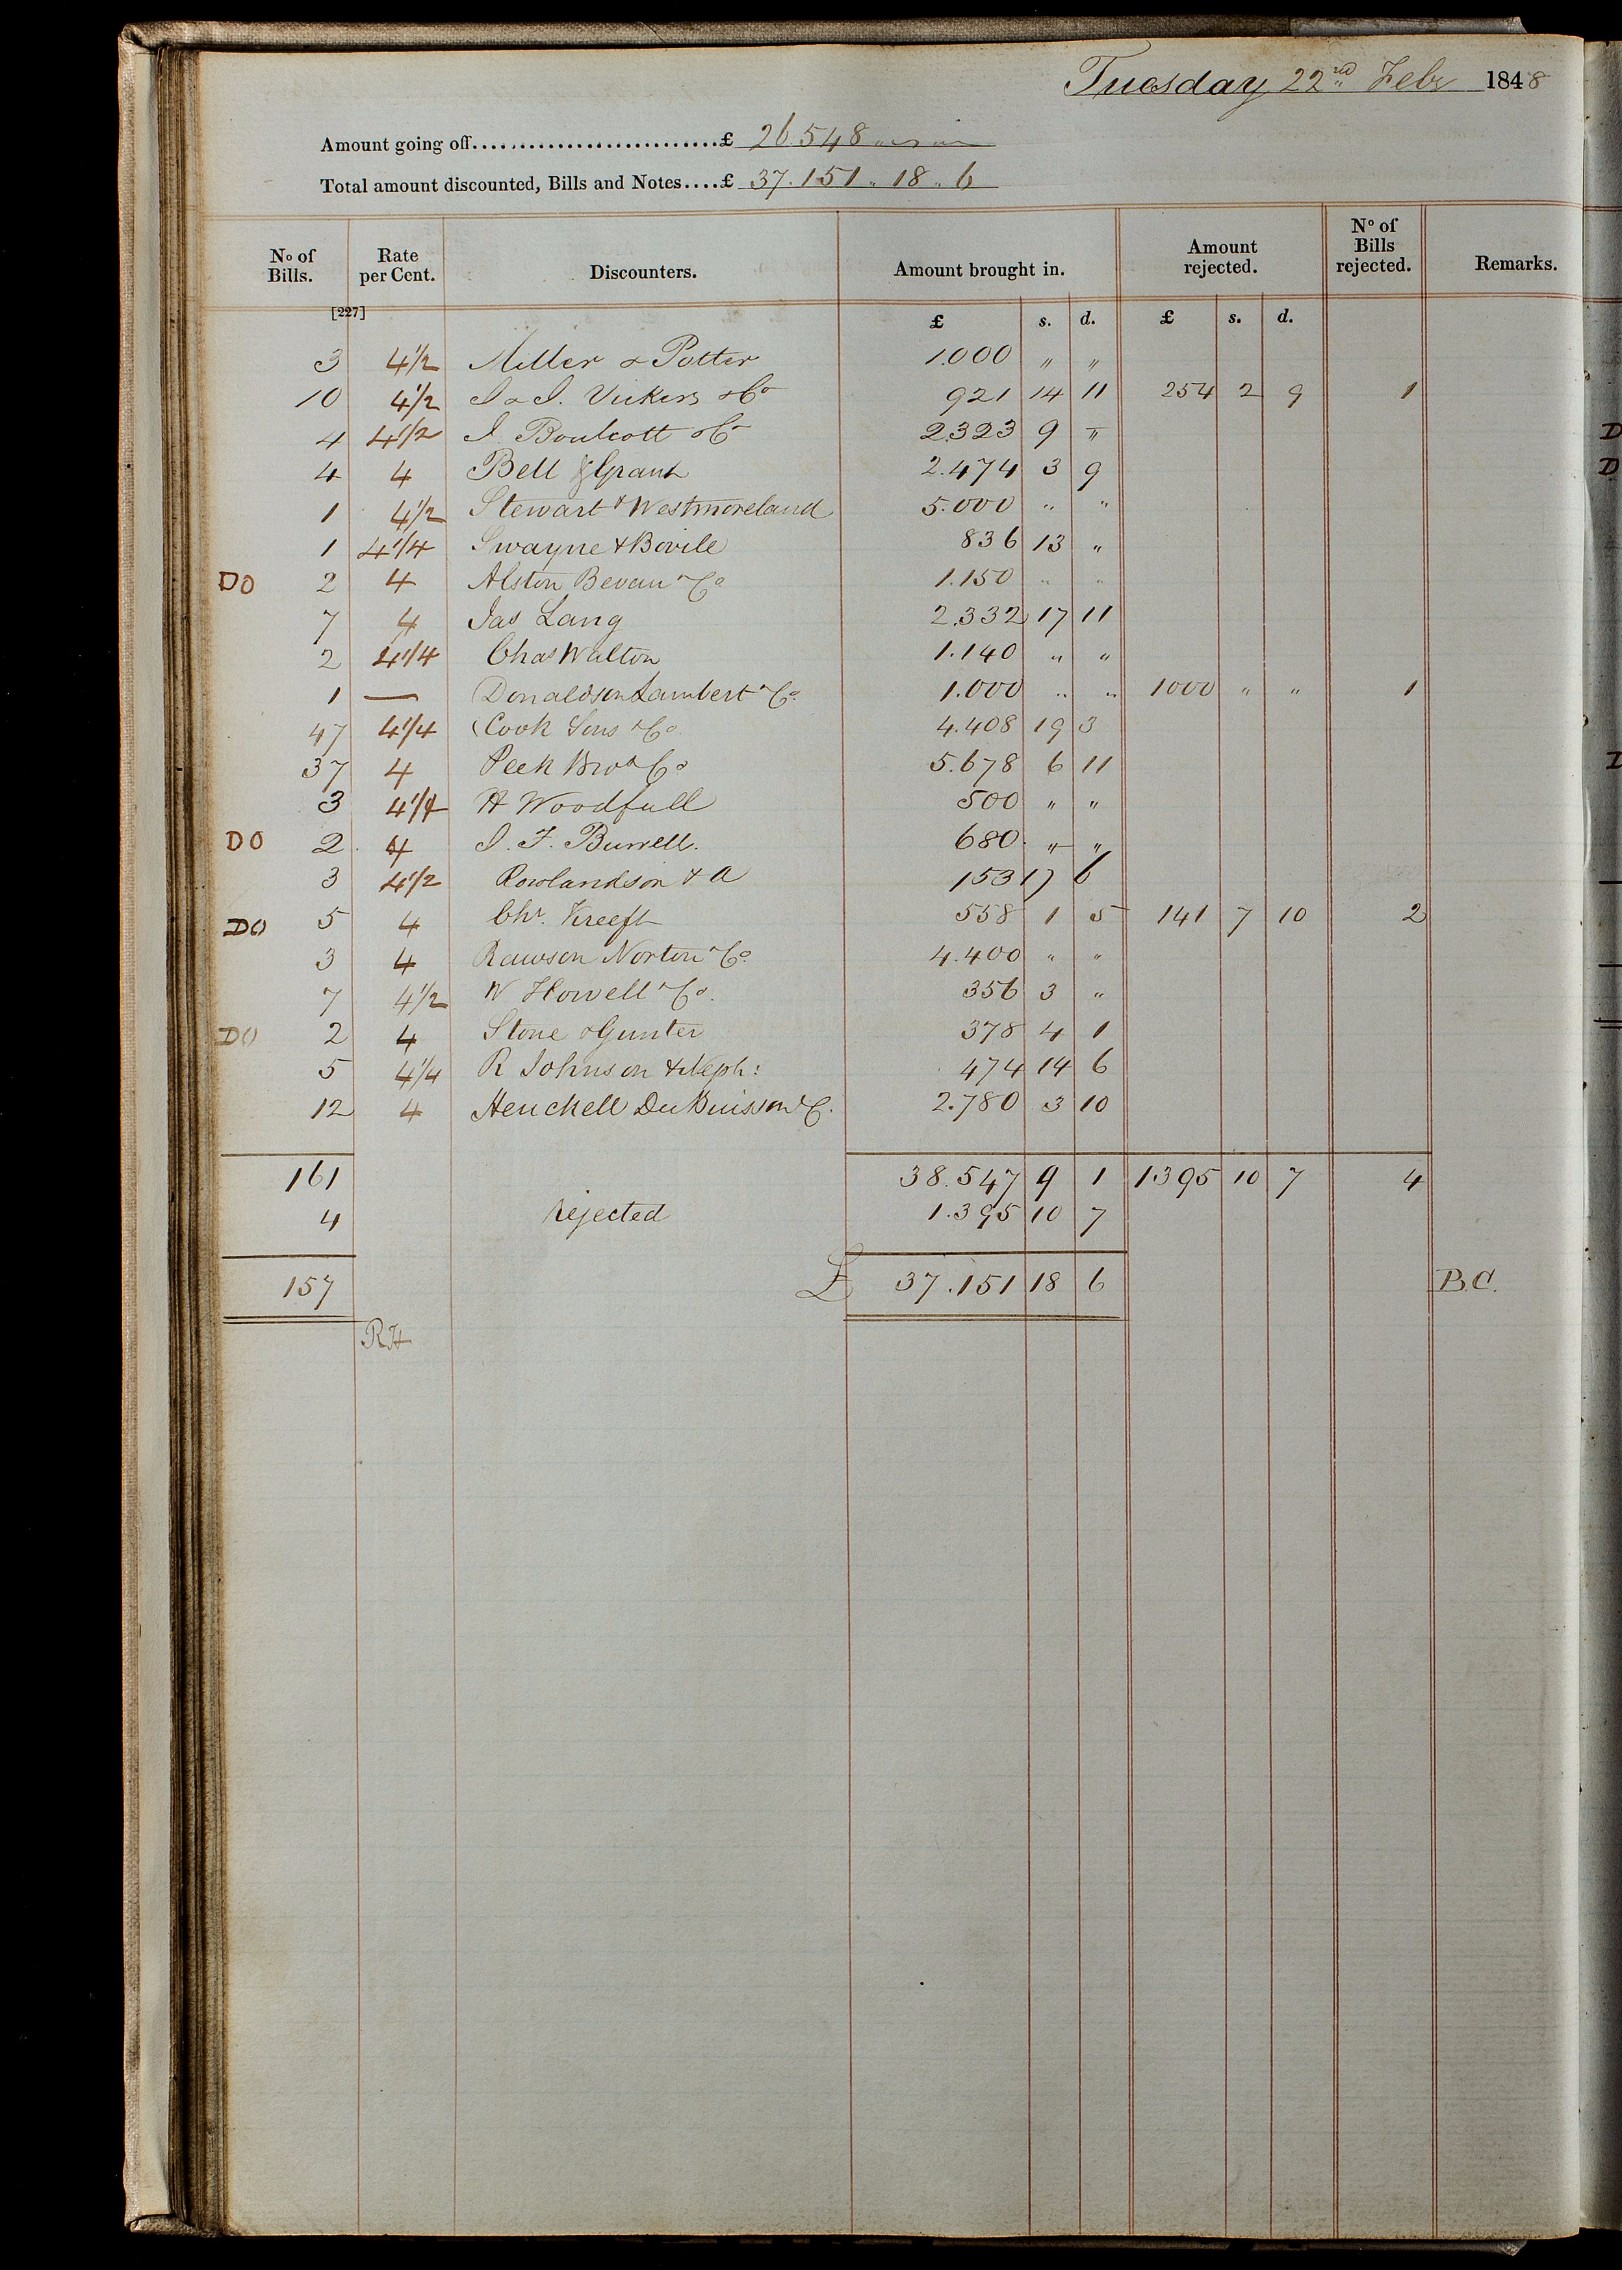 Tuesday 22nd Feby 1848
Amount going off...........................£ 26.548 " " "
Total amount discounted, Bills and Notes....£ 37.151 " 18 " 6
No of Bills. Rate per Cent. Discounters. Amount brought in. Amount rejected. No of Bills rejected. Remarks.
[227]
£ s. d. £ s. d.
3 4 1/2 Miller & Potter 1.000 " "
10 4 1/2 J & J. Vickers & Co 921 14 11 254 2 9 1
4 4 1/2 J. Boulcott & Co 2.323 9 "
4 4 Bell & Grant 2.474 3 9
1 4 1/2 Stewart & Westmoreland 5.000 " "
1 4 1/4 Swayne & Bovile 836 13 "
DO 2 4 Alston Bevan & Co 1.150 " "
7 4 Jas Lang 2.332 17 11
2 4 1/4 Chas Walton 1.140 " "
1 — Donaldson Lambert & Co 1.000 " " 1000 " " 1
47 4 1/4 Cook Sons & Co 4.408 19 3
37 4 Peek Bros & Co 5.678 6 11
3 4 1/4 H Woodfall 500 " "
DO 2 4 J. F. Burrell. 680 " "
3 4 1/2 Rowlandson & A 153 17 6
DO 5 4 Chr. Kreeft 558 1 5 141 7 10 2
3 4 Rawson Norton & Co 4.400 " "
7 4 1/2 W Howell & Co. 356 3 "
DO 2 4 Stone & Gunter 378 4 1
5 4 1/4 R Johnson & Neph: 474 14 6
12 4 Henckell Du Buisson & C. 2.780 3 10
161 38.547 9 1 1395 10 7 4
4 rejected 1.395 10 7
157 £ 37.151 18 6 B.C.
RH